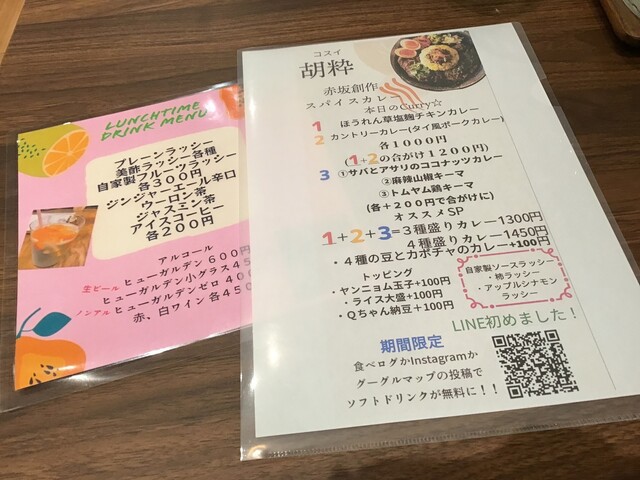 LUNCHTIME
DRINK MENU
プレーンラッシー
美酢ラッシー各種
自家製フルーツラッシー
各３００円
ジンジャーエール辛口
ウーロン茶
ジャスミン茶
アイスコーヒー
各２００円
アルコール
生ビール ヒューガルデン ６００円
ヒューガルデン小グラス４５
ノンアル ヒューガルデンゼロ ４００
赤、白ワイン 各４５０
コスイ
胡粋
赤坂創作
スパイスカレー
本日のCurry☆
1 ほうれん草塩麹チキンカレー
2 カントリーカレー(タイ風ポークカレー)
各１０００円
(1+2の合がけ１２００円)
3 ①サバとアサリのココナッツカレー
②麻辣山椒キーマ
③トムヤム鶏キーマ
(各＋２００円で合がけに)
オススメSP
1+2+3=３種盛りカレー1300円
４種盛りカレー1450円
・４種の豆とカボチャのカレー+100円
トッピング
・ヤンニョム玉子+100円
・ライス大盛+100円
・Ｑちゃん納豆＋100円
自家製ソースラッシー
・柿ラッシー
・アップルシナモン
ラッシー
LINE初めました！
期間限定
食べログかInstagramか
グーグルマップの投稿で
ソフトドリンクが無料に！！